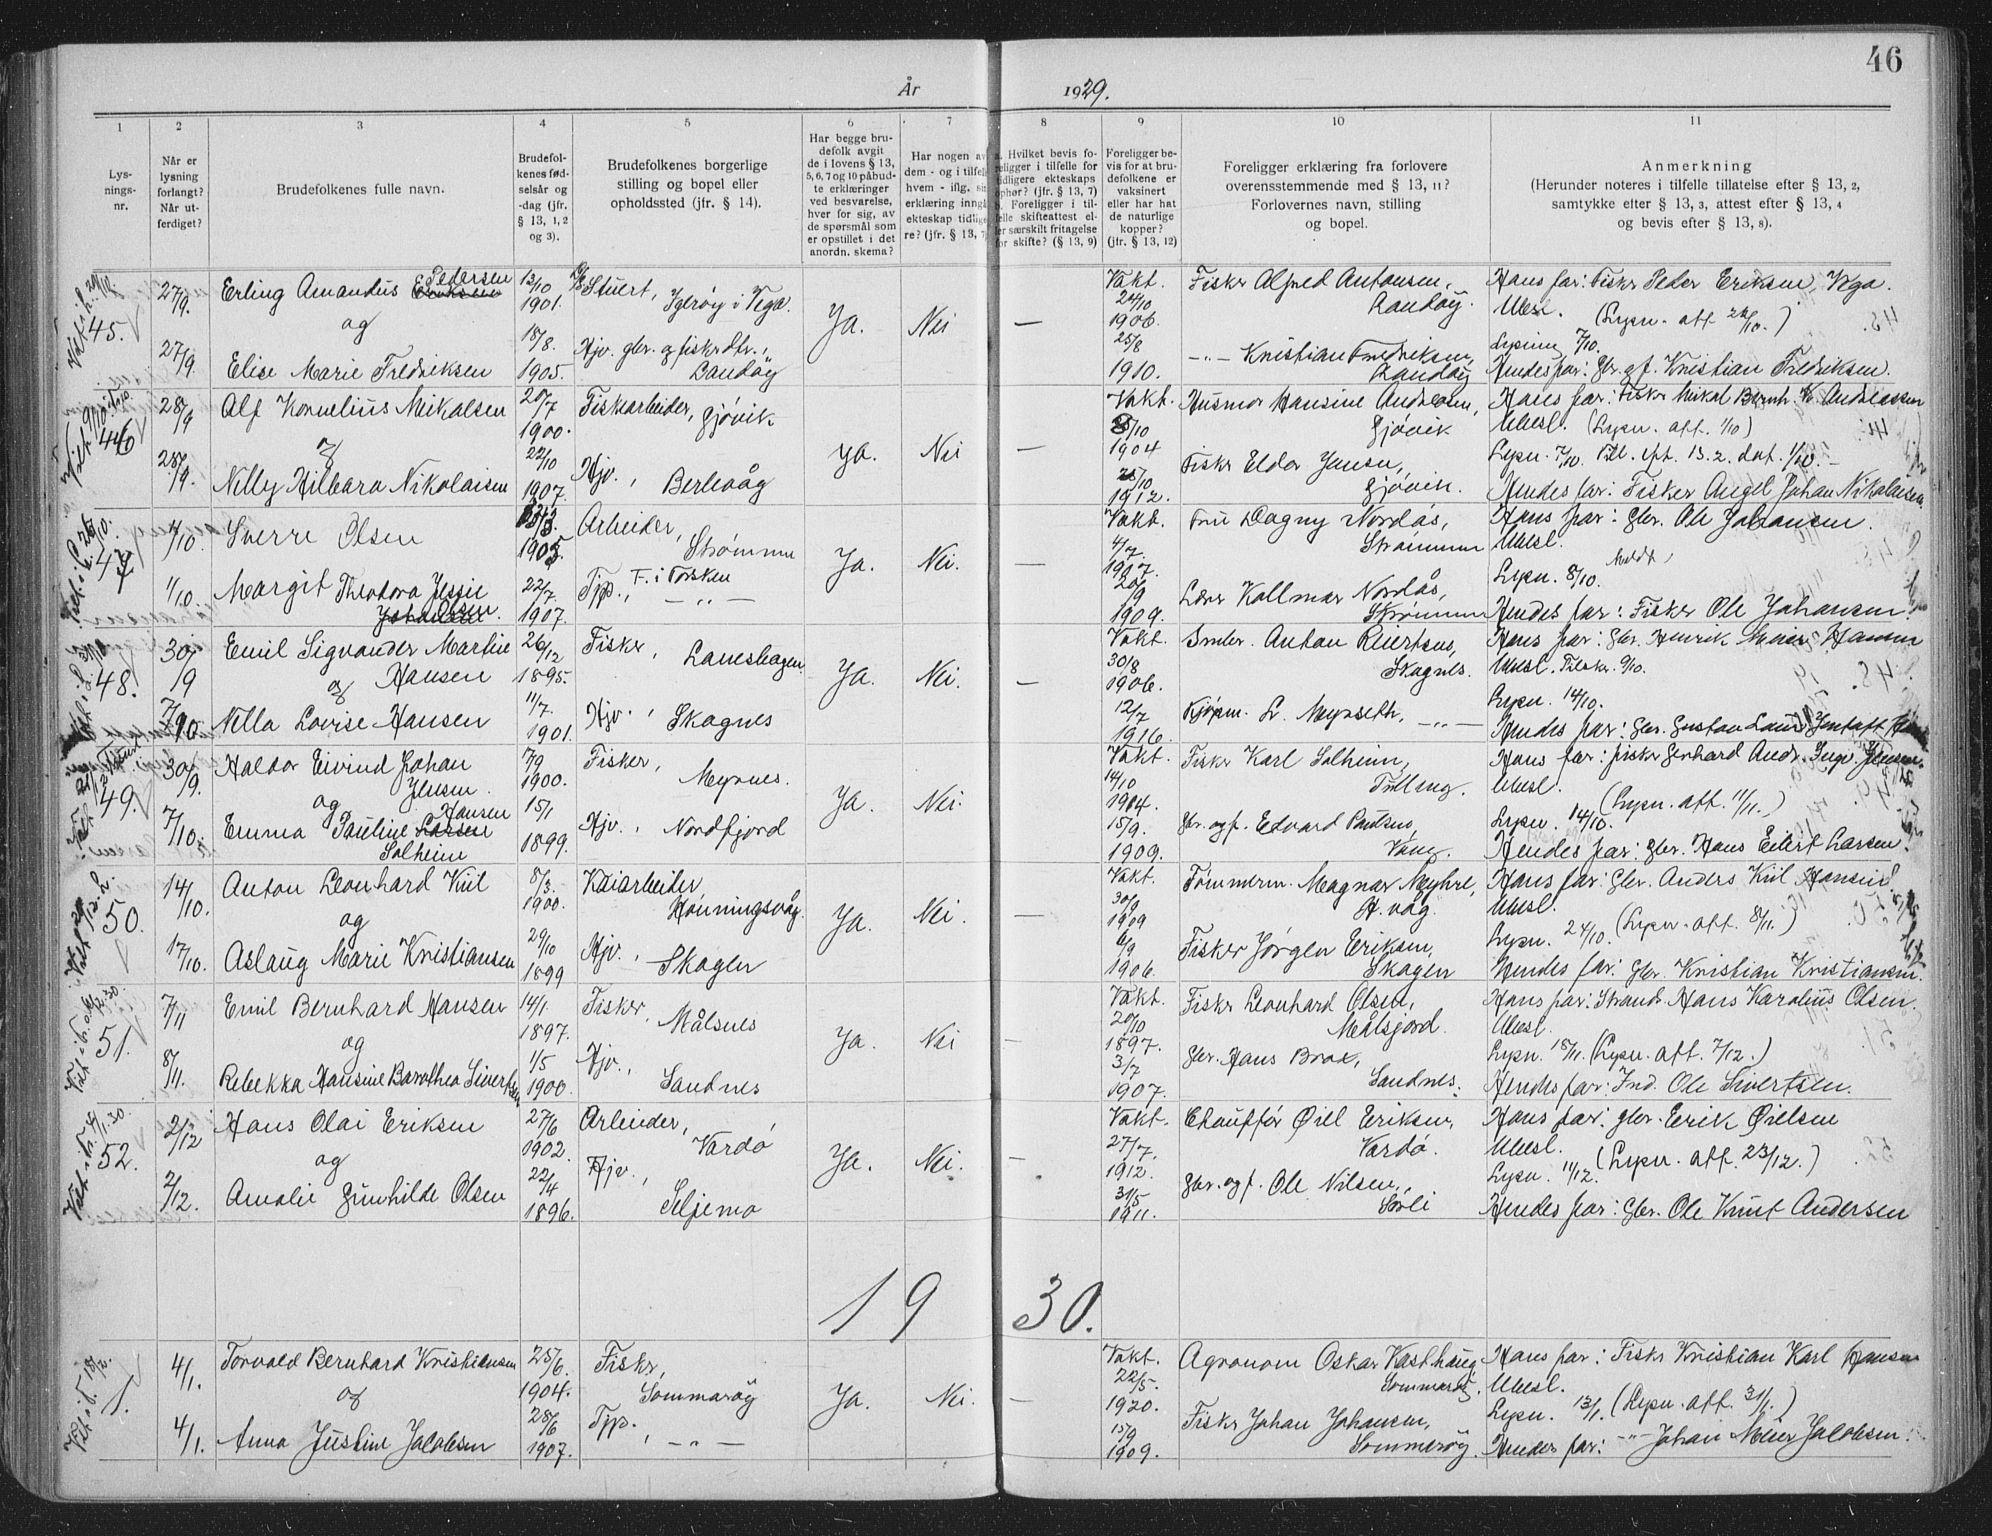 46
År 1929.
1 2 3 4 5 6 7 8 9 10 11
Lys-
nings-
nr.
Når er
lysning
forlangt?
Når ut-
ferdiget?
Brudefolkenes fulle navn.
Brudefol-
kenes fød-
selsår og
-dag (jfr.
§ 13, 1, 2
og 3).
Brudefolkenes borgerlige
stilling og bopel eller
opholdssted (jfr. § 14).
Har begge bru-
defolk avgit
de i lovens § 13,
5, 6, 7 og 10 påbud-
te erklæringer
ved besvarelse,
hver for sig, av
de spørsmål som
er opstillet i det
anordn. skema?
Har nogen av
dem - og i tilfel
hvem - iflg. sin
erklæring inngå
ekteskap tidlige
re? (jfr. § 13, 7
a. Hvilket bevis fo-
religger i tilfelle for
tidligere ekteskaps
ophør? (jfr. § 13, 7)
b. Foreligger i til-
felle skifteattest el-
ler særskilt fritagelse
for skifte? (§ 13, 9)
Foreligger be-
vis for at bru-
defolkene er
vaksinert
eller har hat
de naturlige
kopper?
(jfr. § 13, 12)
Foreligger erklæring fra forlovere
overensstemmende med § 13, 11?
Forlovernes navn, stilling
og bopel.
Anmerkning
(Herunder noteres i tilfelle tillatelse efter § 13, 2,
samtykke efter § 13, 3, attest efter § 13, 4
og bevis efter § 13, 8).
45.
27/9.
Erling Amandus Pedersen
13/10
1901.
Stuert,
Igerøy i Vega.
og
27/9.
Elise Marie Fredriksen
18/8.
1905.
Hjv. gbr. og fiskrdtr.,
Sandøy
Ja. Nei —
Vakt.
24/10
1906.
25/8
1910.
Fiskr Alfred Antonsen,
Sandøy.
-"- Kristian Fredriksen,
Sandøy
Hans far: Fiskr Peder Eriksen, Vega.
Ubesl. (Lysn. att. 24/10.)
Lysning 7/10.
Hendes far: Gbr. og f. Kristian Fredriksen.
46
28/9
Alf Kornelius Mikalsen
20/7
1900.
Fiskarbeider, Gjøvik
28/9.
Nelly Hilbara Nikolaisen
22/10
1907.
Hjv., Berlevåg
Ja. Nei —
Vakt.
1904
25/10
1912.
Husmor Hansine Andreasen,
Gjøvik
Fiskr Eldor Jensen,
Gjøvik.
Hans far: Fiskr Mikal Bernh. Andreassen
Ubesl. (Lysn. att. 1/10)
Lysn. 7/10.
Hendes far: Fisker Angel Johan Nikolaisen
47
1/10.
Sverre Olsen
Arbeider,
Strømmen
1/10.
Margit Theodora Jessie
Johansen.
22/7.
1907.
Tjp., T. i Torsken
-"-
Ja. Nei. —
Vakt.
4/7.
1907.
20/9
1909.
Fru Dagny Nordås,
Strømmen
Lærer Kollmar Nordås,
Strømmen
Hans far: Gbr. Ole Johansen.
Ubesl.
Lysn. 8/10.
Hendes far: Fisker Ole Johansen
48.
30/9
Emil Sigvander Martin
Hansen
26/12
1895.
Fiskr, Laneshagen
og
7/10.
Nilla Lovise Hansen
11/7.
1901.
Hjv., Skognes
Ja. Nei. —
Vakt.
30/8
1906.
12/7
1916.
Anton Ruertsus,
Skognes.
Kjøpm. L. Myrseth, -"-
Hans far: Gbr. Henrik Meier Hansen
Ubesl. Tilokr. 9/10.
Lysn. 14/10.
Hendes far: Gbr. Gustav
49.
30/9.
Haldor Eivind Johan
Jensen.
7/9
1900.
Fisker,
Myrnes.
og
7/10.
Emma Pauline Larsen Hansen
Solheim
15/1
1899.
Hjv., Nordfjord
Ja. Nei.
Vakt.
14/10
1904.
15/9.
1909.
Fiskr Karl Solheim,
Gbr. og f. Edvard Paulsen,
Vang.
Hans far: fiskr Gerhard Andr. Inge Jensen.
Ubesl. (Lysn. att. 11/11.)
Lysn. 14/10.
Hendes far: Gbr. Hans Eilert Larsen.
50.
14/10.
Anton Leonhard Kiil
8/3.
1900.
Kaiarbeider,
Honningsvåg.
og
17/10.
Aslaug Marie Kristiansen
29/10
1899
Hjv., Skogen
Ja. Nei. —
Vakt.
30/9
1909
6/9
1906.
Tømmerm. Magnar Myhre,
H.våg.
Fisker Jørgen Eriksen,
Skogen
Hans far: Gbr. Anders Kiil Hansen.
Ubesl.
Lysn. 24/10. (Lysn. att. 8/11.)
Hendes far: Gbr. Kristian Kristiansen.
51.
7/11
Emil Bernhard Hansen
14/1.
1897.
Fisker,
Målsnes
og
8/11.
Rebekka Hansine Barothea Sivertsen
1/5
1900.
Hjv.,
Sandnes
Ja. Nei —
Vakt.
20/10
1897.
3/7
1907.
Fiskr Leonhard Olsen,
Målsjord.
Gbr. Hans Brox,
Sandnes.
Hans far: Strands. Hans Karolius Olsen.
Ubesl.
Lysn. 18/11. (Lysn. att. 7/12.)
Hendes far: Ind. Ole Sivertsen.
52.
2/12
Hans Olai Eriksen
27/6
1902.
Arbeider,
Vardø
og
2/12.
Amalie Gunhilde Olsen
22/4
1896.
Hjv.,
Seljemo
Ja. Nei. —
Vakt.
27/7.
1912.
31/5
1911.
Chauffør Øiel Eriksen,
Vardø.
Gbr. og f. Ole Nilsen,
Sørli
Hans far: Gbr. Erik Øielsen
Ubesl.
Lysn. 11/12. (Lysn. att. 23/12.)
Hendes far: Gbr. Ole Knut Andersen
1930.
1.
4/1.
Torvald Bernhard Kristiansen
25/6.
1904.
Fiskr,
Sommarøy
og
4/1.
Anna Justine Jakobsen
28/6
1907.
Tjp., -"-
Ja. Nei. —
Vakt.
22/5.
1920.
15/9
1909.
Agronom Oskar Kasthaug,
Sommarøy.
Fiskr Johan Johansen,
Sommerøy.
Hans far: Fiskr Kristian Karl Hansen
Ubesl.
Lysn. 13/1. (Lysn. att. 31/1.)
Hendes far: -"- Johan Meier Jakobsen.